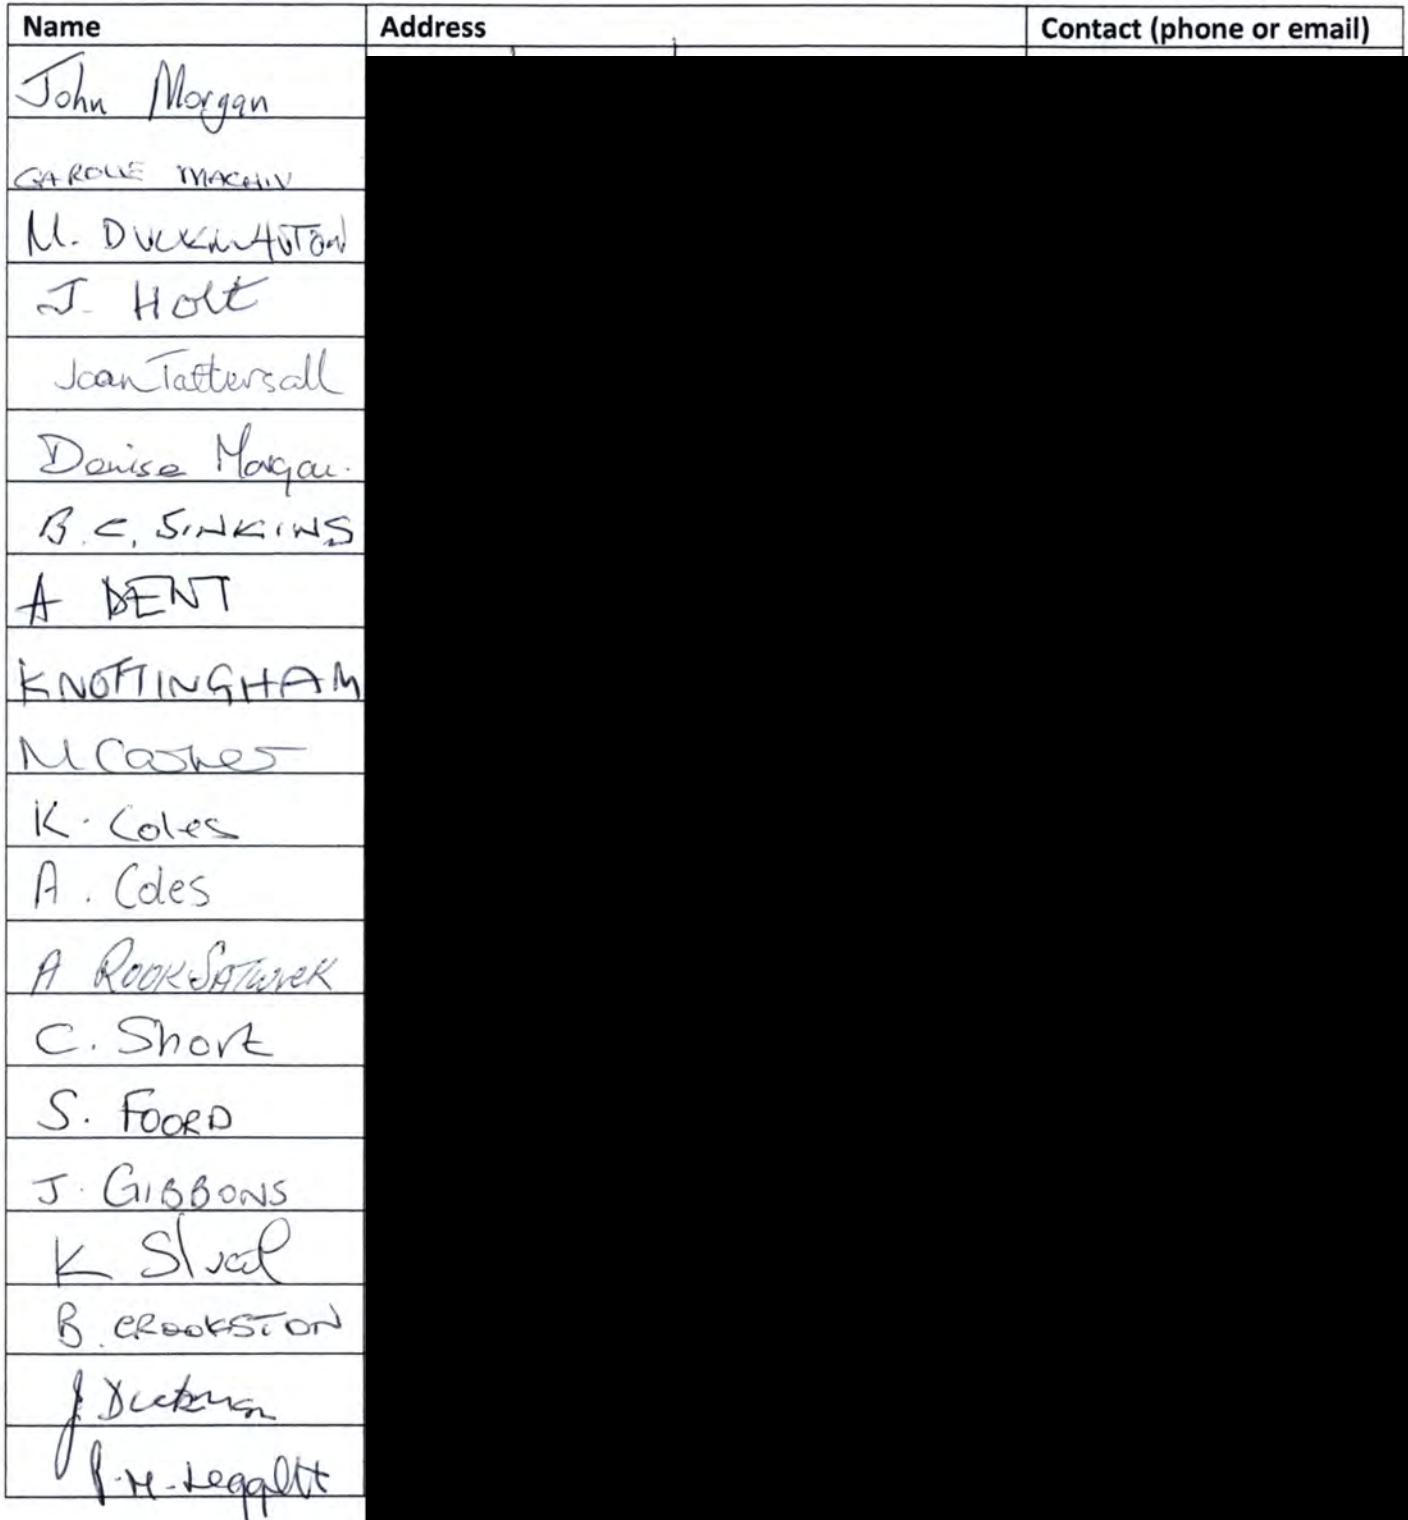 Name Address Contact (phone or email)
John Morgan
CAROLE MACHIN
M. DUCKHAUTON
J. Holt
Joan Tattersall
Denise Morgan.
B.C. SINKINS
A DENT
K NOTTINGHAM
M Cashes
K. Coles
A. Coles
A
C. Short
S. FOORD
J. GIBBONS
K
B. CROOKSTON
J Duckman
P.M. Leggett